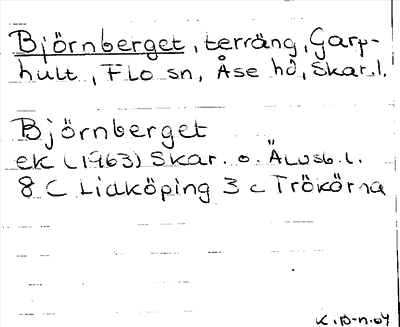 Björnberget, terräng, Garp-
hult, Flo sn, Åse hd, Skar. l.
Björnberget
ek (1963) Skar. o. Älvsb. l.
8 C Lidköping 3 c Trökörna